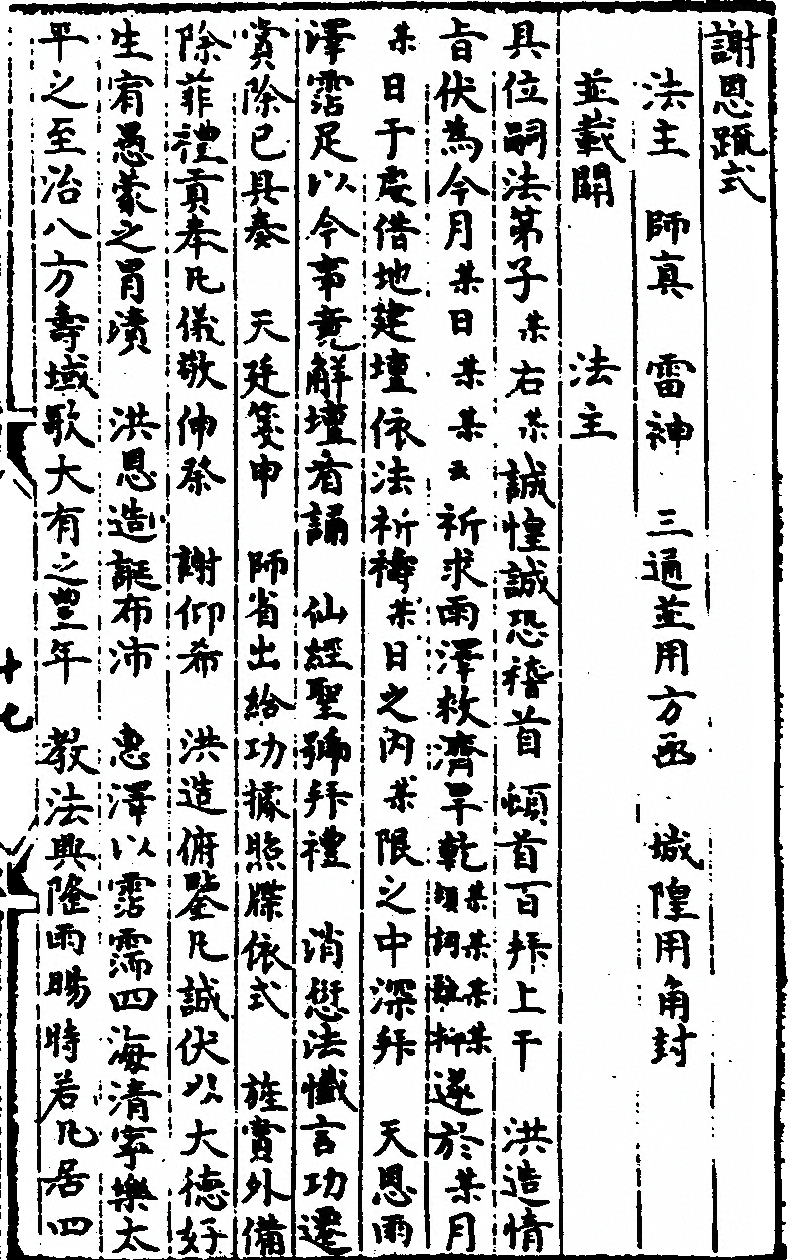 謝恩疏式
法主　師真　雷神　三通並用方函　城隍用角封
並載開　　　法主
具位嗣法弟子某右某誠惶誠恐稽首頓首百拜上干　洪造情
旨伏為今月某日某某云祈求雨澤救濟旱乾須詞難抑某某某某遂於某月
某日于處借地建壇依法祈禱某日之內某限之中深拜　天恩雨
澤霑足以今事竟解壇看誦　仙經聖號拜禮　消愆法懺言功遷
賞除已具奏　天廷箋申　師省出給功據照牒依式　旌賞外備
除菲禮貢奉凡儀敬伸祭　謝仰希　洪造俯鑒凡誠伏以大德好
生宥愚蒙之冒瀆　洪恩造誕布沛　惠澤以霑霈四海清寧樂太
平之至治八方壽域歌大有之豐年　教法興隆雨暘時若凡居四
十七